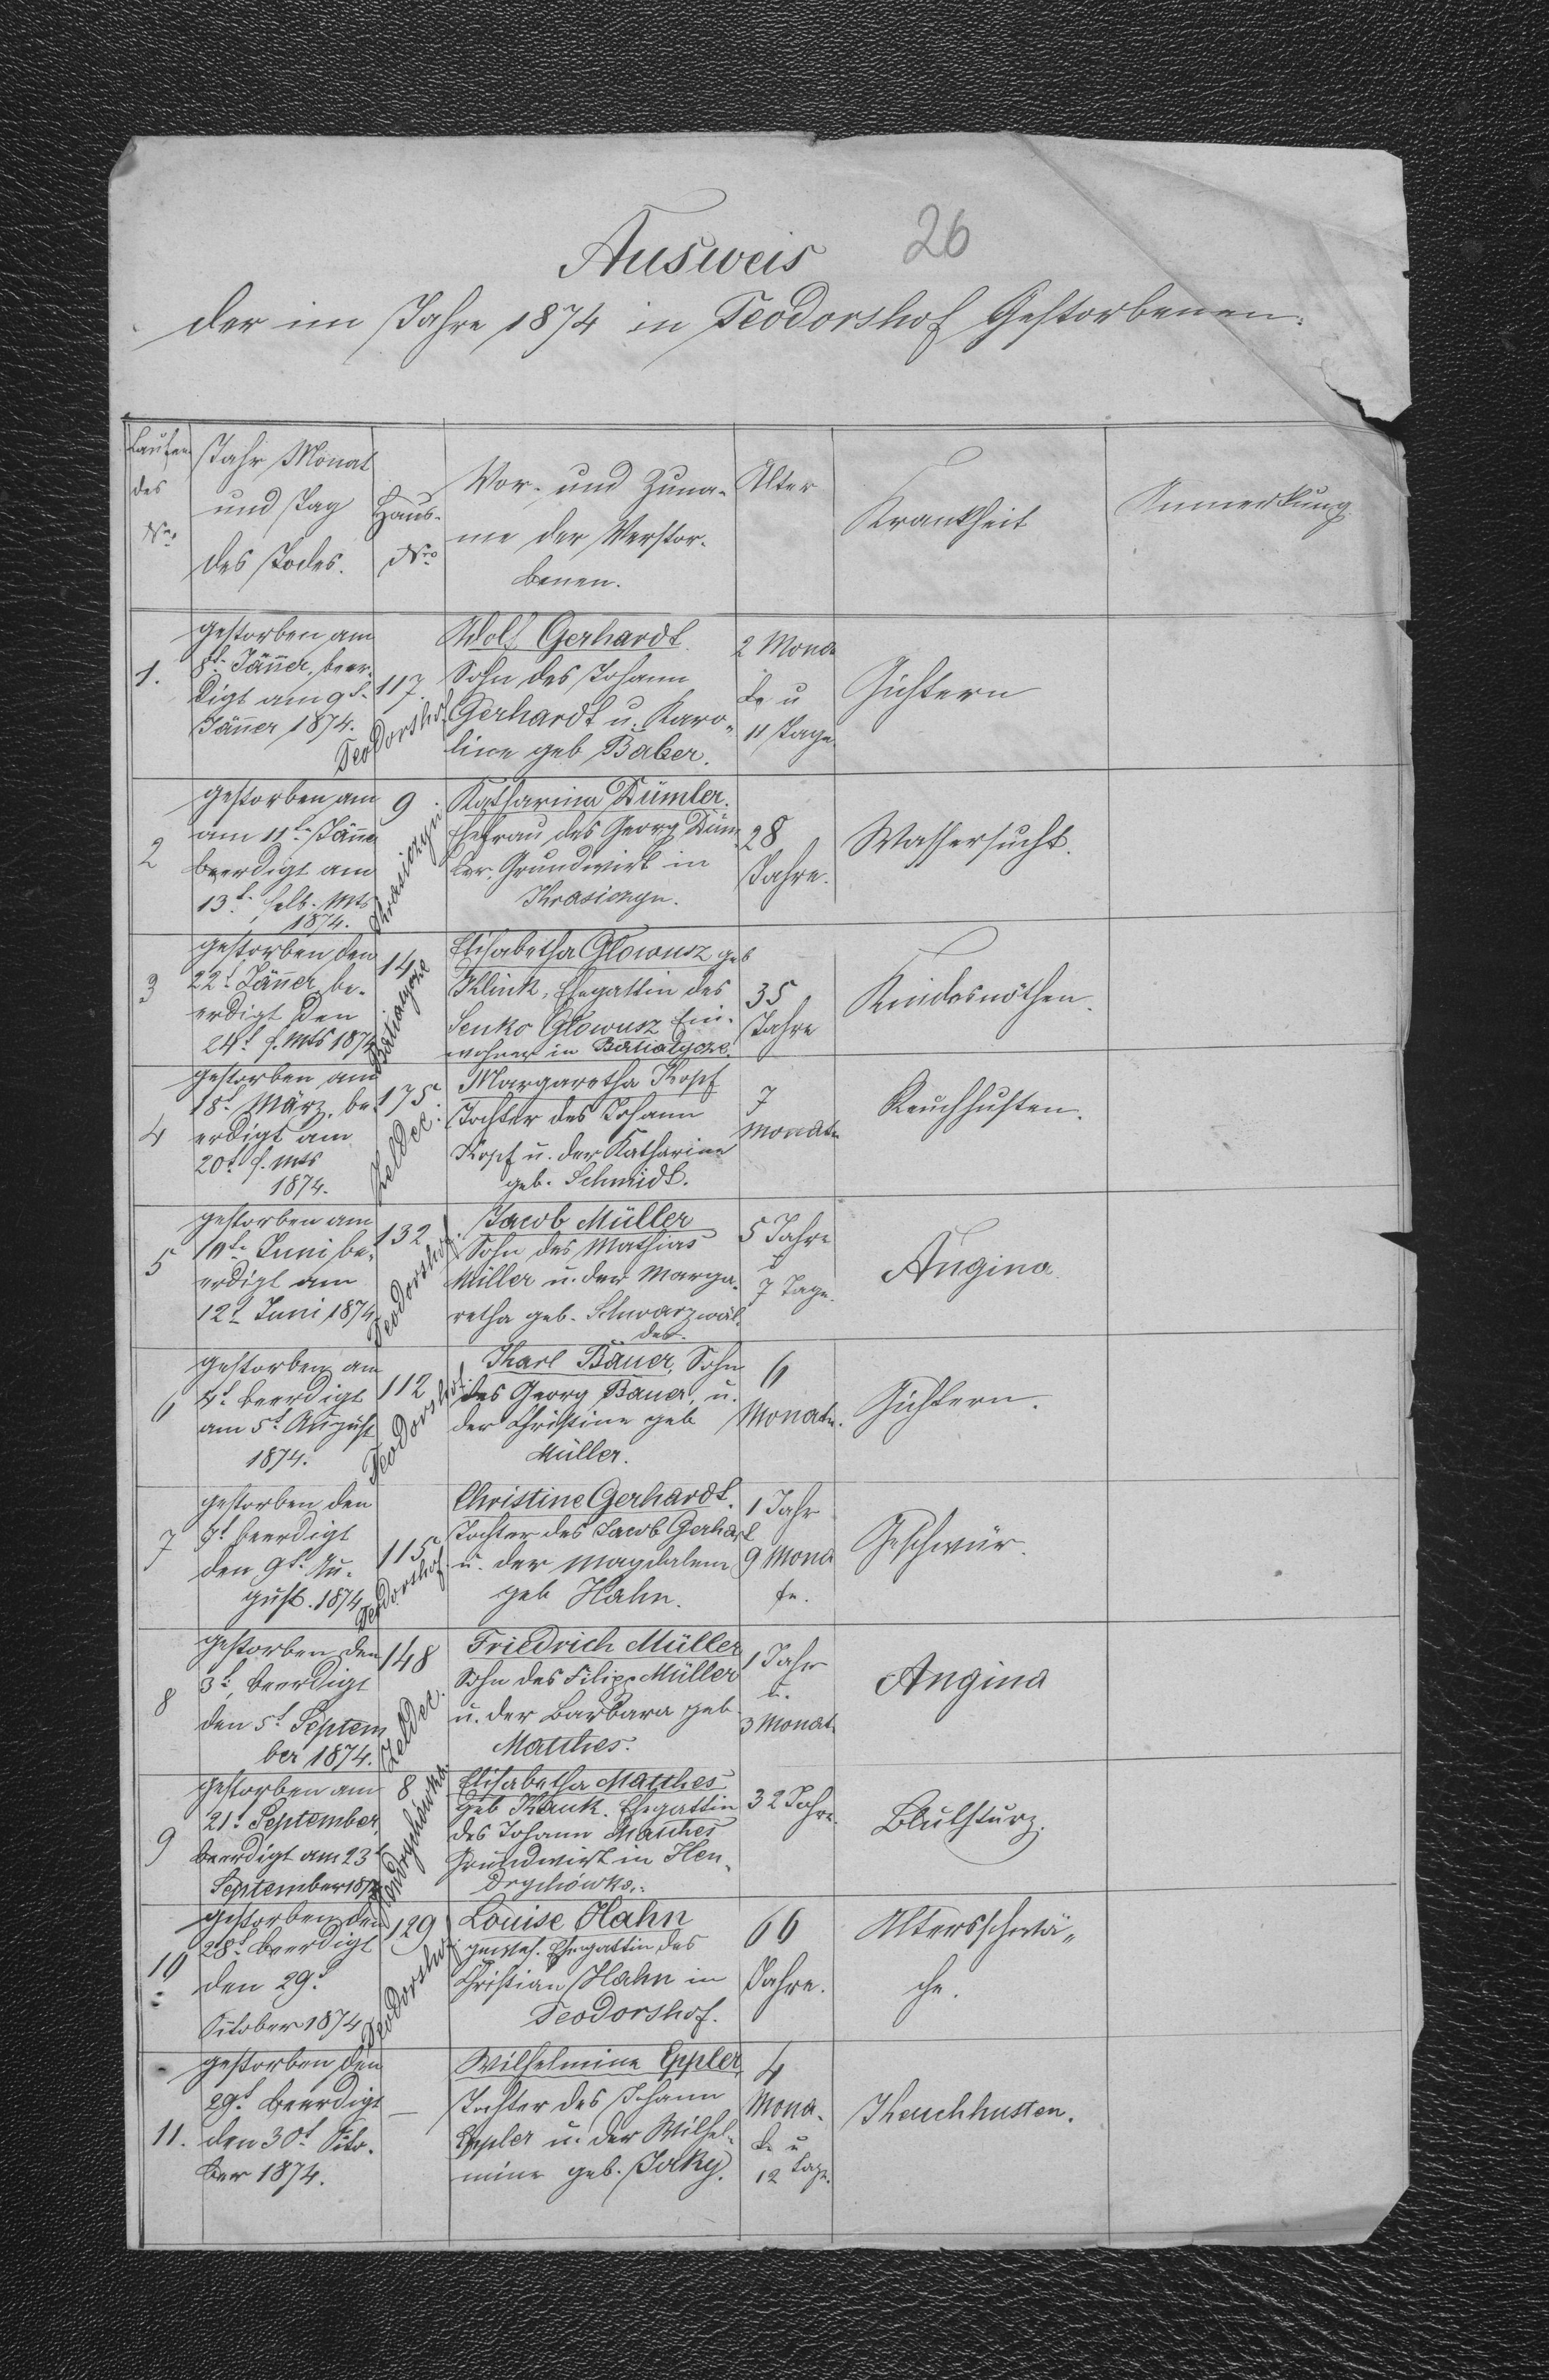 26
Ausweis
der im Jahre 1874 in Teodorshof Gestorbenen.
Laufen
des
Nro
Jahr Monat
und Tag
des Todes.
Haus-
Nro
Vor- und Zuna-
me der Verstor-
benen.
Alter
Krankheit
Anmerkung.
1.
gestorben am
8t. Jänner, beer-
digt am 9t.
Jänner 1874.
117.
Teodorshof
Adolf Gerhardt.
Sohn des Johann
Gerhardt u. Karo-
line geb Baber.
2 Mona
te u
11 Tage.
Gichtern
2
gestorben am
am 11t. Jänner
beerdigt am
13t. selb. Mts
1874.
9.
Krasiczyn
Katharina Dümler.
Ehefrau des Georg Düm-
ler. Grundwirt in
Krasiczyn.
28
Jahre.
Wassersucht.
3
gestorben den
22t. Jänner, be-
erdigt den
24t. s. Mts 1874
14
Batiatycze
Elisabetha Glowusz geb
Klink, Ehegattin des
Senko Glowusz Ein-
wohner in Batiatycze.
35
Jahre
Kindsnöthen.
4
gestorben am
18t. März. be-
erdigt am
20t. s. Mts
1874.
175.
Zeldec.
Margaretha Kopf
Tochter des Johann
Kopf u. der Katharine
geb. Schmidt.
7
Monate
Keuchhusten.
5
gestorben am
10te Juni be-
erdigt am
12t. Juni 1874
132
Teodorshof
Jacob Müller
Sohn des Mathias
Müller u. der Marga-
retha geb. Schwarzwäl-
der.
5 Jahre
u
7 Tage.
Angina
6
gestorben am
4t. beerdigt
am 5t. August
1874.
112
Teodorshof.
Karl Bauer, Sohn
des Georg Bauer, u.
der Christine geb
Müller.
6
Monate.
Gichtern.
7
gestorben den
7t. beerdigt
den 9t. Au-
gust. 1874
115
Teodorshof.
Christine Gerhardt.
Tochter des Jacob Gerhardt
u. der Magdalena
geb Hahn.
1 Jahr
9 Mona
te.
Geschwür.
8
gestorben den
3t. beerdigt
den 5t. Septem
ber 1874.
148
Zeldec.
Friedrich Müller
Sohn des Filipp Müller
u. der Barbara geb
Matthes.
1 Jahr
u.
3 Monat.
Angina
9
gestorben am
21t. September,
beerdigt am 23t
September 1874
8
Hendrychówka.
Elisabetha Matthes
geb Kauk. Ehegattin
des Johann Matthes
Grundwirt in Hen-
drychówka.
32 Jahre.
Blutsturz.
10
gestorben den
28t. beerdigt
den 29t.
October 1874
129
Teodorshof.
Louise Hahn
gewes. Ehegattin des
Christian Hahn in
Teodorshof.
66
Jahre.
Altersschwä-
che.
11.
gestorben den
29t. beerdigt
den 30t. Octo-
ber 1874.
Wilhelmine Eppler,
Tochter des Johann
Eppler u. der Wilhel-
mine geb. Jaky.
4
Mona-
te u
12 Tage.
Keuchhusten.